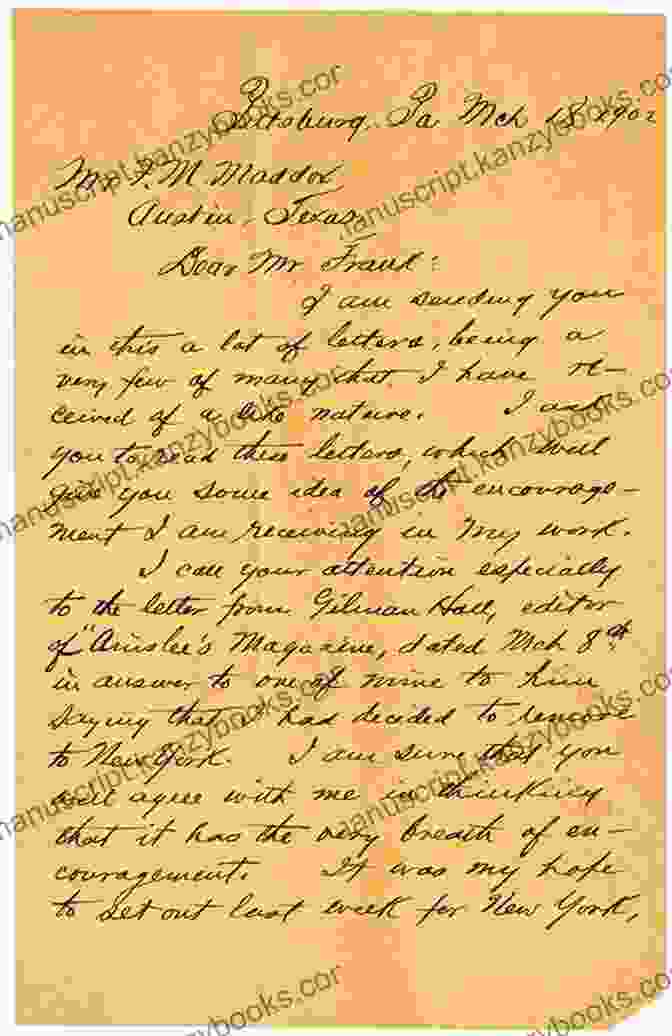 Pittsburg, Pa Mch 18 1902
Mr. F. M. Maddox
Austin, Texas
Dear Mr. Frank:
I am sending you
in this a lot of letters, being a
very few of many that I have re-
ceived of a like nature. I ask
you to read these letters, which will
give you some idea of the encourage-
ment I am receiving in my work.
I call your attention especially
to the letter from Gilman Hall, editor
of "Ainslee's Magazine, dated Mch 8th
in answer to one of mine to him
saying that I had decided to remove
to New York. I am sure that you
will agree with me in thinking
that it has the very breath of en-
couragement. It was my hope
to set out last week for New York,
manuscript.kanzybooks.cor